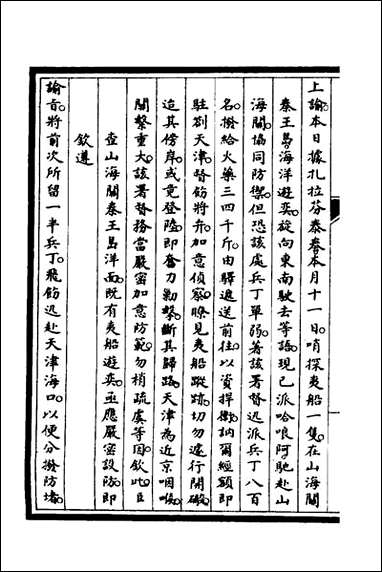 上諭本日據扎拉芬泰奏本月十一日哨探夷船一隻在山海關
秦王島海洋遊奕旋向東南駛去等語現已派哈哴阿馳赴山
海關協同防禦但恐該處兵丁單弱著該署督迅派兵丁八百
名撥給火藥三四千斤由驛遞送前往以資捍衛訥爾經額即
駐劄天津督飭將弁加意偵察瞭見夷船蹤跡切勿遽行開礮
造其傍岸或竟登陸即奮力勦擊斷其歸路天津為近京咽喉
關繫重大該署督務當嚴密加意防範勿稍疏虞等因欽此臣
查山海關秦王島洋面既有夷船遊奕亟應嚴密設防即
欽遵
諭旨將前次所留一半兵丁飛飭迅赴天津海口以便分撥防堵